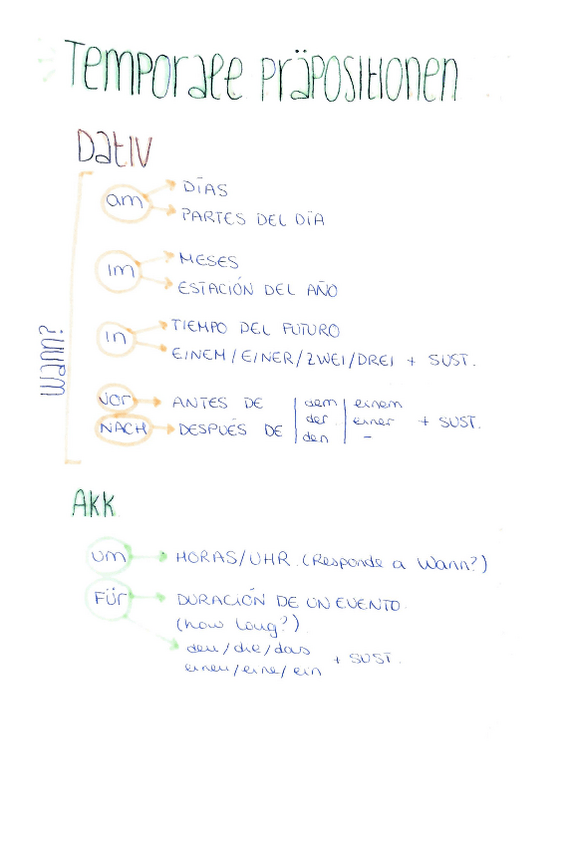 Temporale Präpositionen
Dativ
Wann?
am
DÍAS
PARTES DEL DÍA
im
MESES
ESTACIÓN DEL AÑO
in
TIEMPO DEL FUTURO
EINEM/EINER/ZWEI/DREI + SUST.
vor ANTES DE
NACH DESPUÉS DE
dem einem
der einer + SUST.
den -
AKK
um HORAS/UHR. (Responde a Wann?)
FÜR DURACIÓN DE UN EVENTO.
(how long?)
den/die/das
einen/eine/ein + SUST.